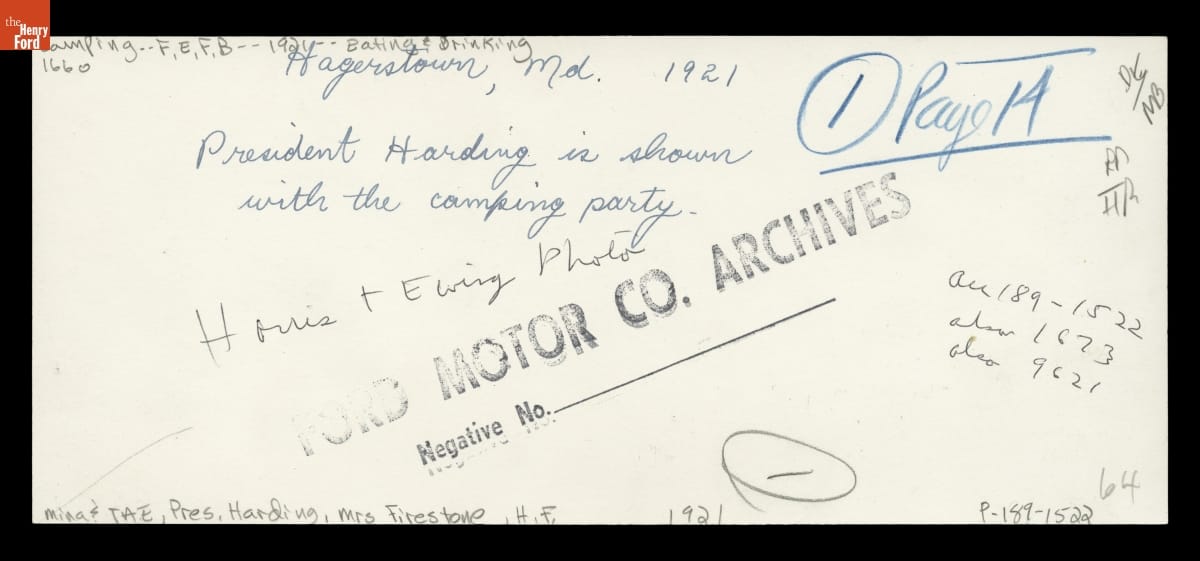 the
Henry
Ford
Camping--F,E,F,B--1921--Eating & Drinking
1660
Hagerstown, Md. 1921
1 Page 14
DKy/
MB
President Harding is shown
with the camping party.
Harris + Ewing Photo
FORD MOTOR CO. ARCHIVES
Negative No.
acc 189-1522
also 1673
also 9621
64
mina & TAE, Pres. Harding, Mrs Firestone, H.F. 1921
P-189-1522